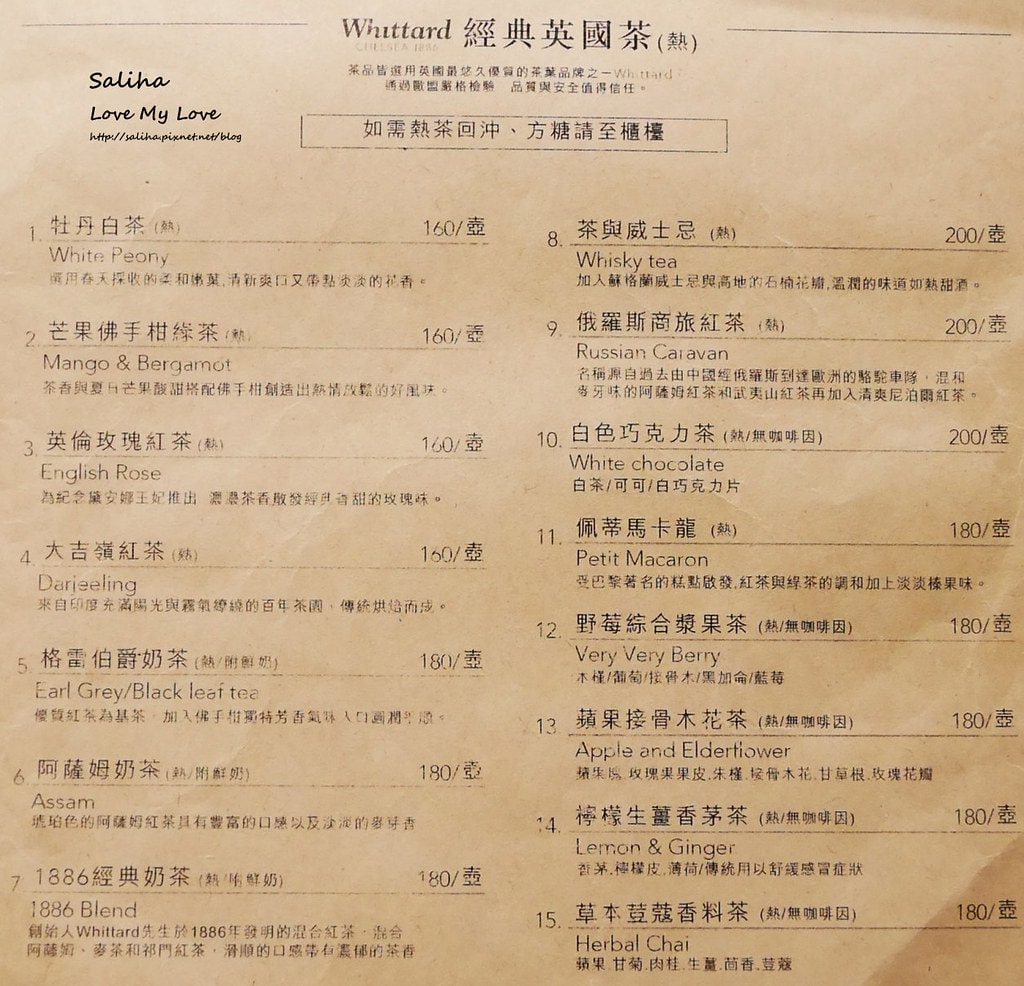 Whittard 經典英國茶(熱)
CHELSEA 1886
茶品皆選用英國最悠久優質的茶葉品牌之一Whittard
通過歐盟嚴格檢驗 品質與安全值得信任。
Saliha
Love My Love
http://saliha.pixnet.net/blog
如需熱茶回沖、方糖請至櫃檯
1. 牡丹白茶(熱) 160/壺
White Peony
選用春天採收的柔和嫩葉,清新爽口又帶點淡淡的花香。
2. 芒果佛手柑綠茶(熱) 160/壺
Mango & Bergamot
茶香與夏日芒果酸甜搭配佛手柑創造出熱情放鬆的好風味。
3. 英倫玫瑰紅茶(熱) 160/壺
English Rose
為紀念黛安娜王妃推出 濃濃茶香散發經典香甜的玫瑰味。
4. 大吉嶺紅茶(熱) 160/壺
Darjeeling
來自印度充滿陽光與霧氣繚繞的百年茶園,傳統烘焙而成。
5. 格雷伯爵奶茶(熱/附鮮奶) 180/壺
Earl Grey/Black leaf tea
優質紅茶為基茶,加入佛手柑獨特芳香氣味入口圓潤順。
6. 阿薩姆奶茶(熱/附鮮奶) 180/壺
Assam
琥珀色的阿薩姆紅茶具有豐富的口感以及淡淡的麥芽香
7. 1886經典奶茶(熱/附鮮奶) 180/壺
1886 Blend
創始人Whittard先生於1886年發明的混合紅茶,混合
阿薩姆、麥茶和祁門紅茶,滑順的口感帶有濃郁的茶香
8. 茶與威士忌 (熱) 200/壺
Whisky tea
加入蘇格蘭威士忌與高地的石楠花瓣,溫潤的味道如熱甜酒。
9. 俄羅斯商旅紅茶 (熱) 200/壺
Russian Caravan
名稱源自過去由中國經俄羅斯到達歐洲的駱駝車隊,混和
麥牙味的阿薩姆紅茶和武夷山紅茶再加入清爽尼泊爾紅茶。
10. 白色巧克力茶 (熱/無咖啡因) 200/壺
White chocolate
白茶/可可/白巧克力片
11. 佩蒂馬卡龍 (熱) 180/壺
Petit Macaron
受巴黎著名的糕點啟發,紅茶與綠茶的調和加上淡淡榛果味。
12. 野莓綜合漿果茶 (熱/無咖啡因) 180/壺
Very Very Berry
木槿/葡萄/接骨木/黑加侖/藍莓
13. 蘋果接骨木花茶 (熱/無咖啡因) 180/壺
Apple and Elderflower
蘋果塊,玫瑰果果皮,朱槿,接骨木花,甘草根,玫瑰花瓣
14. 檸檬生薑香茅茶 (熱/無咖啡因) 180/壺
Lemon & Ginger
香茅,檸檬皮,薄荷/傳統用以舒緩感冒症狀
15. 草本荳蔻香料茶 (熱/無咖啡因) 180/壺
Herbal Chai
蘋果,甘菊,肉桂,生薑,茴香,荳蔻